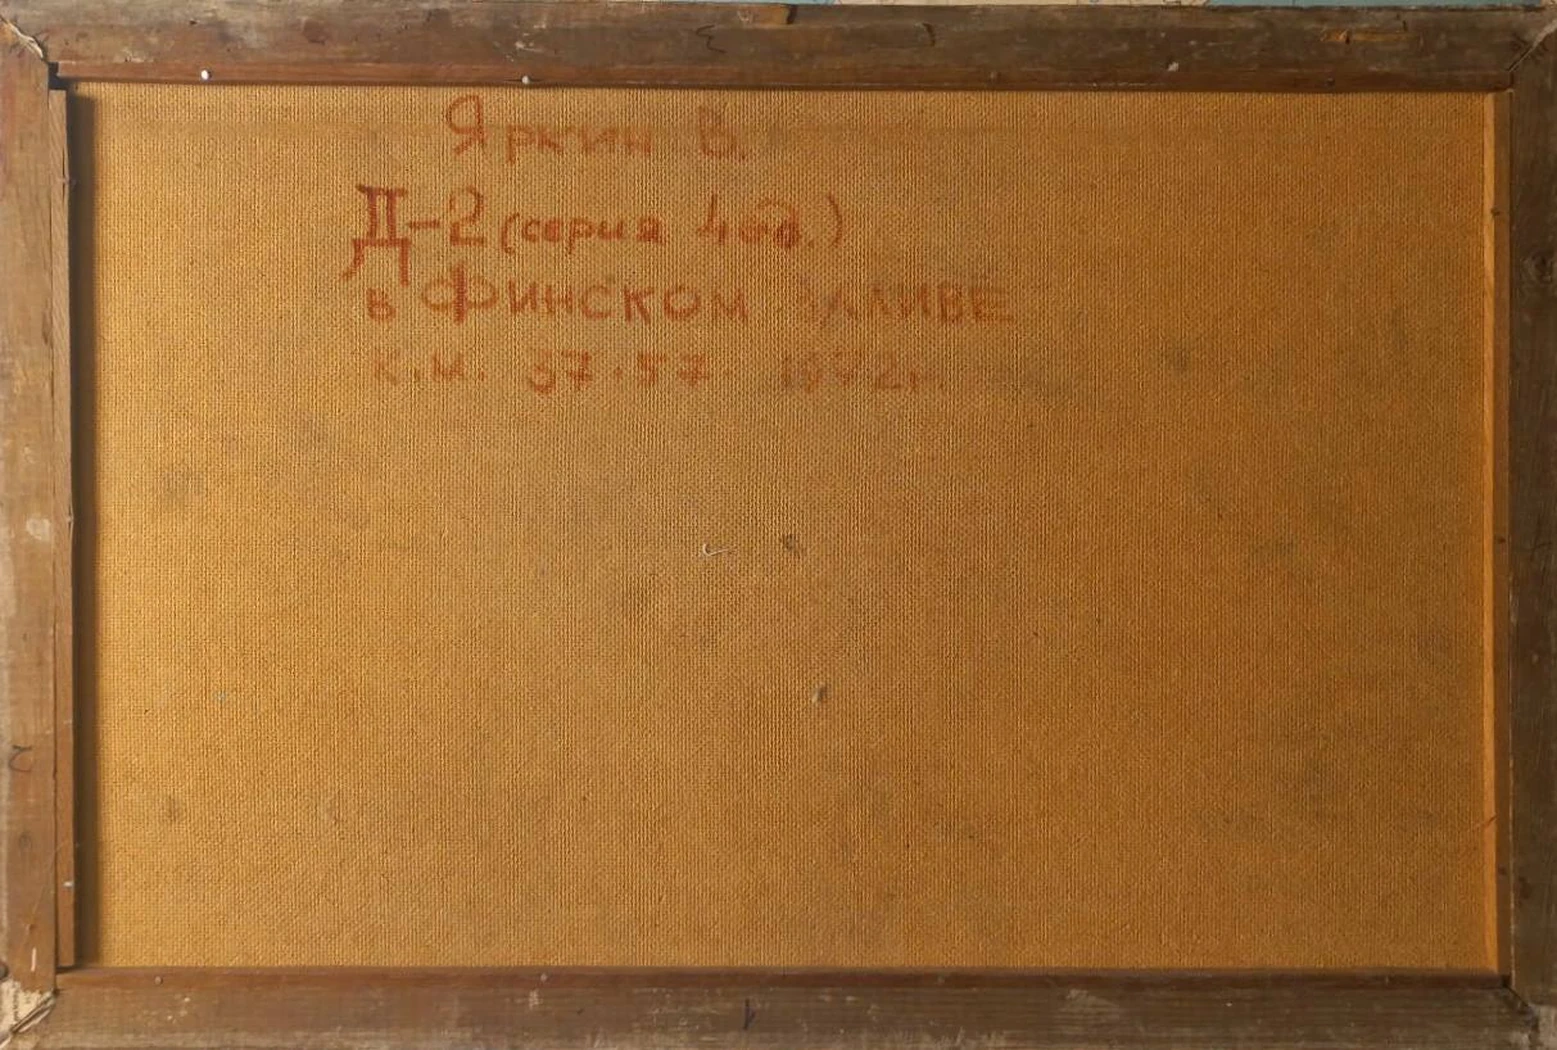 Яркин В.
Д-2 (серия 4 ед.)
в ФИНСКОМ ЗАЛИВЕ
К.М. 37.57 1972г.